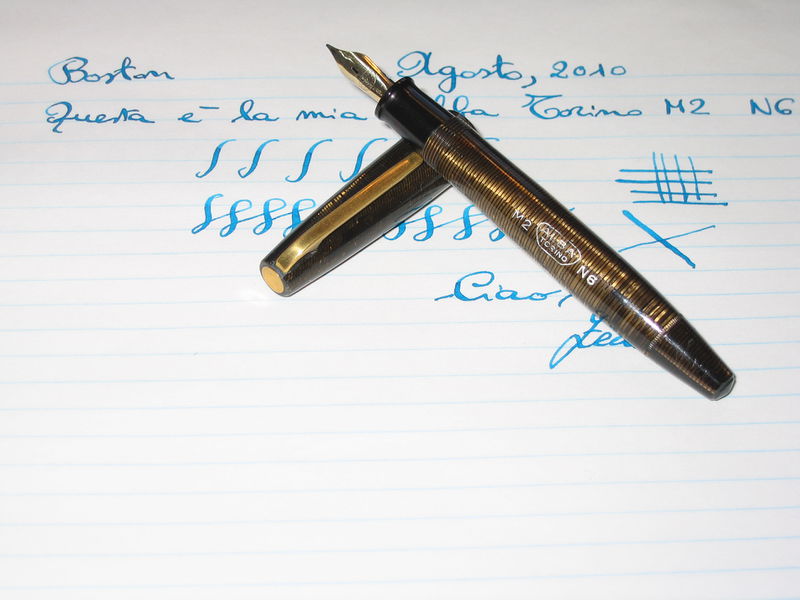 Boston Agosto, 2010
Questa è la mia lba Torino M2 N6
Ciao,
M2 ALBA TORINO N6